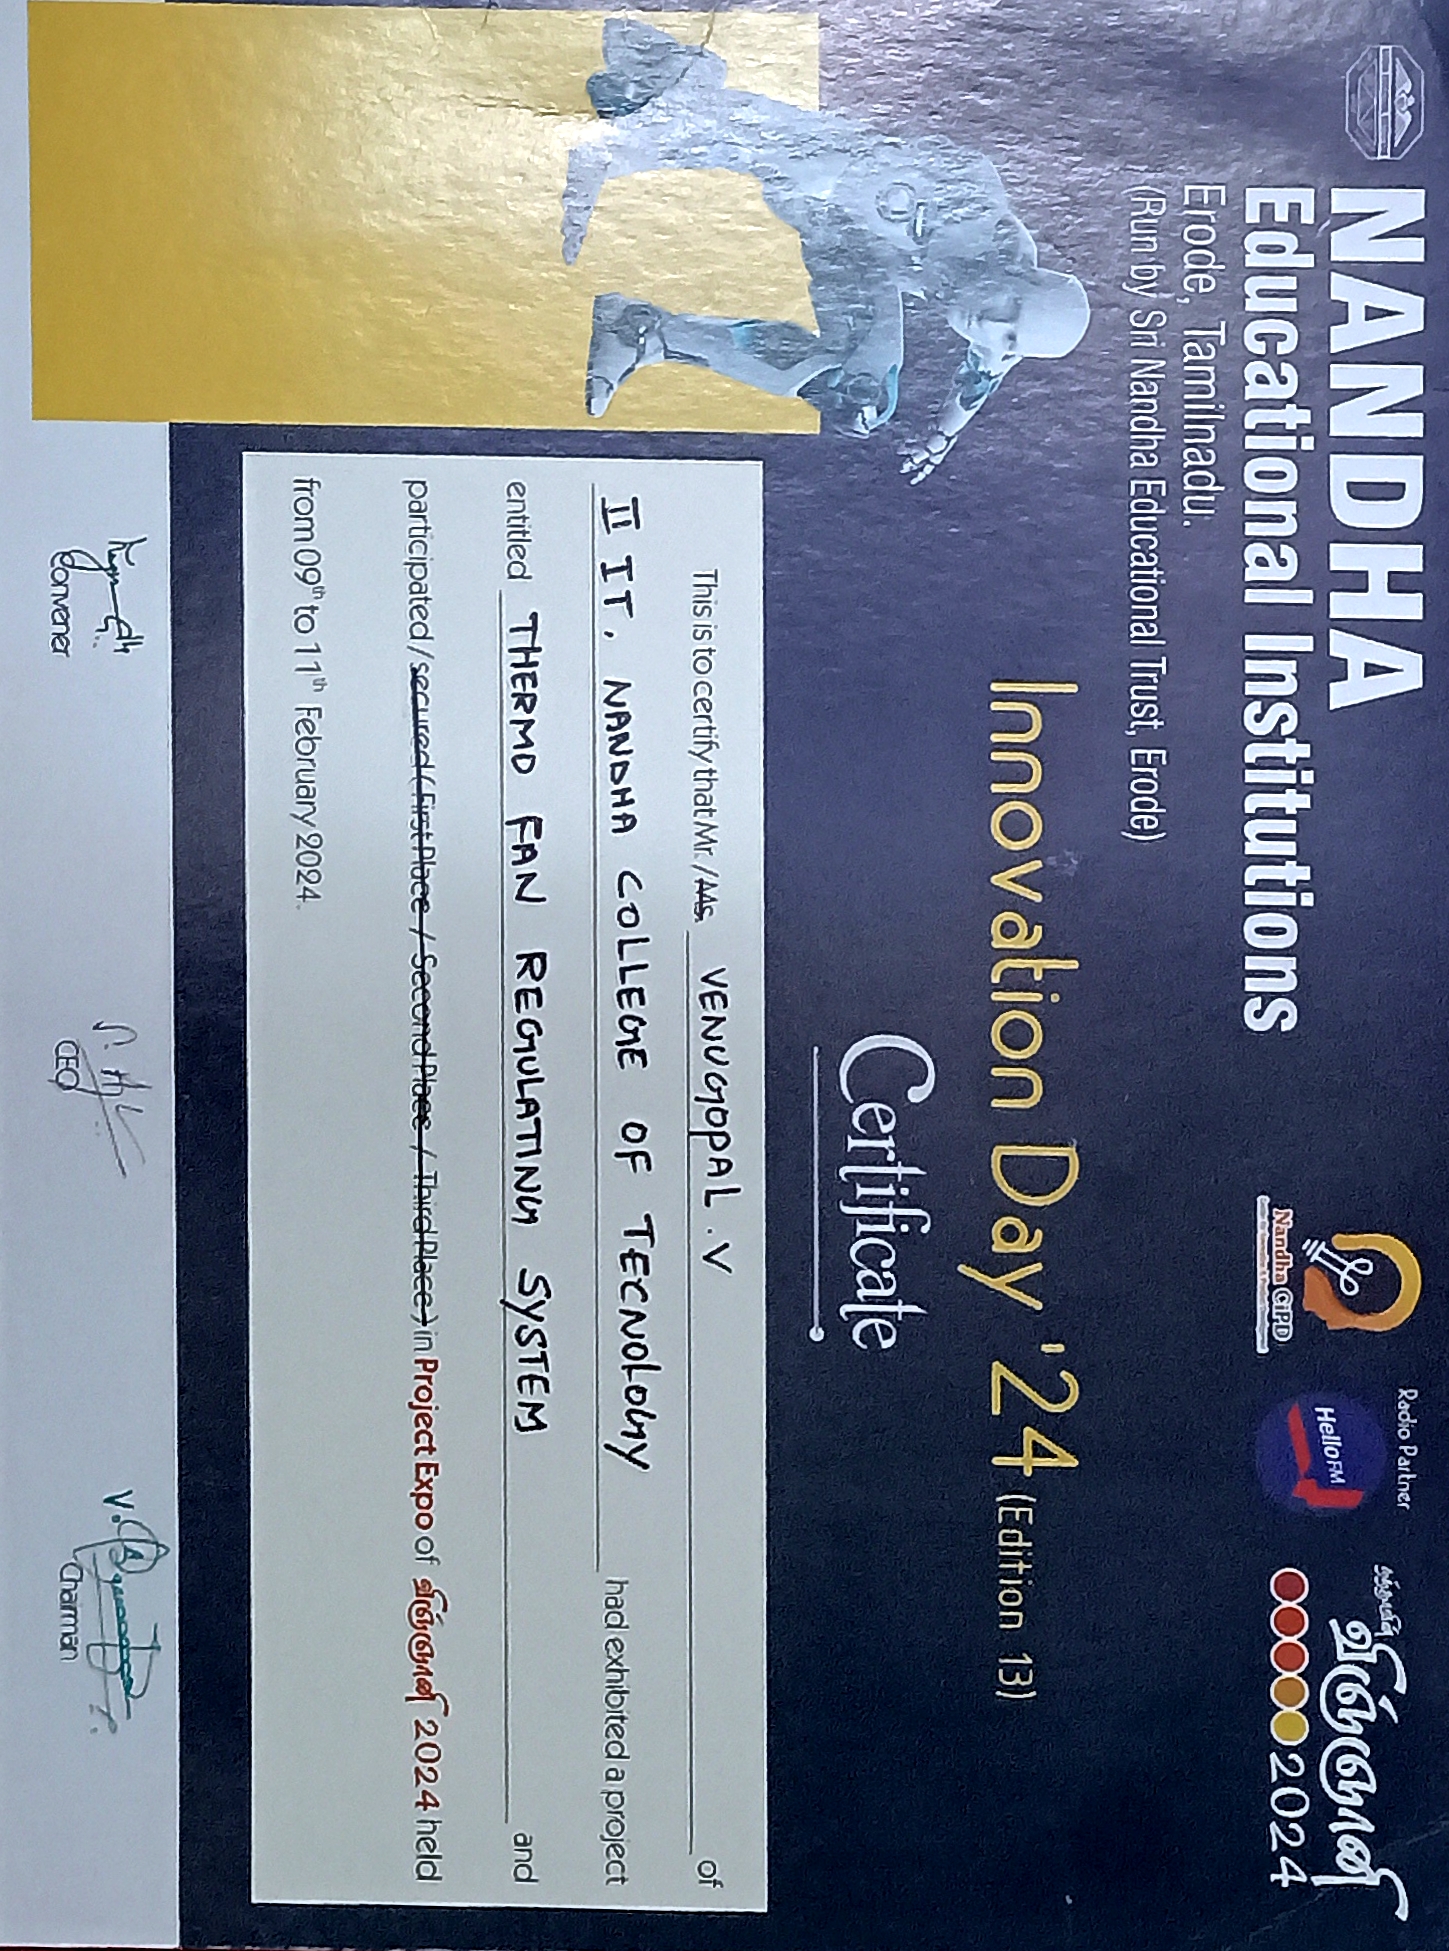 NANDHA
Educational Institutions
Erode, Tamilnadu.
(Run by Sri Nandha Educational Trust, Erode)
Nandha CiPD
Center for Innovation & Product Development
Radio Partner
Hello FM
நந்தாவின்
விஞ்ஞானி
2024
Innovation Day '24 (Edition 13)
Certificate
This is to certify that Mr. / Ms. VENUGOPAL . V of
II IT, NANDHA COLLEGE OF TECNOLOGY had exhibited a project
entitled THERMO FAN REGULATING SYSTEM and
participated / secured ( First Place / Second Place / Third Place ) in Project Expo of விஞ்ஞானி 2024 held
from 09th to 11th February 2024.
Convener
CEO
Chairman